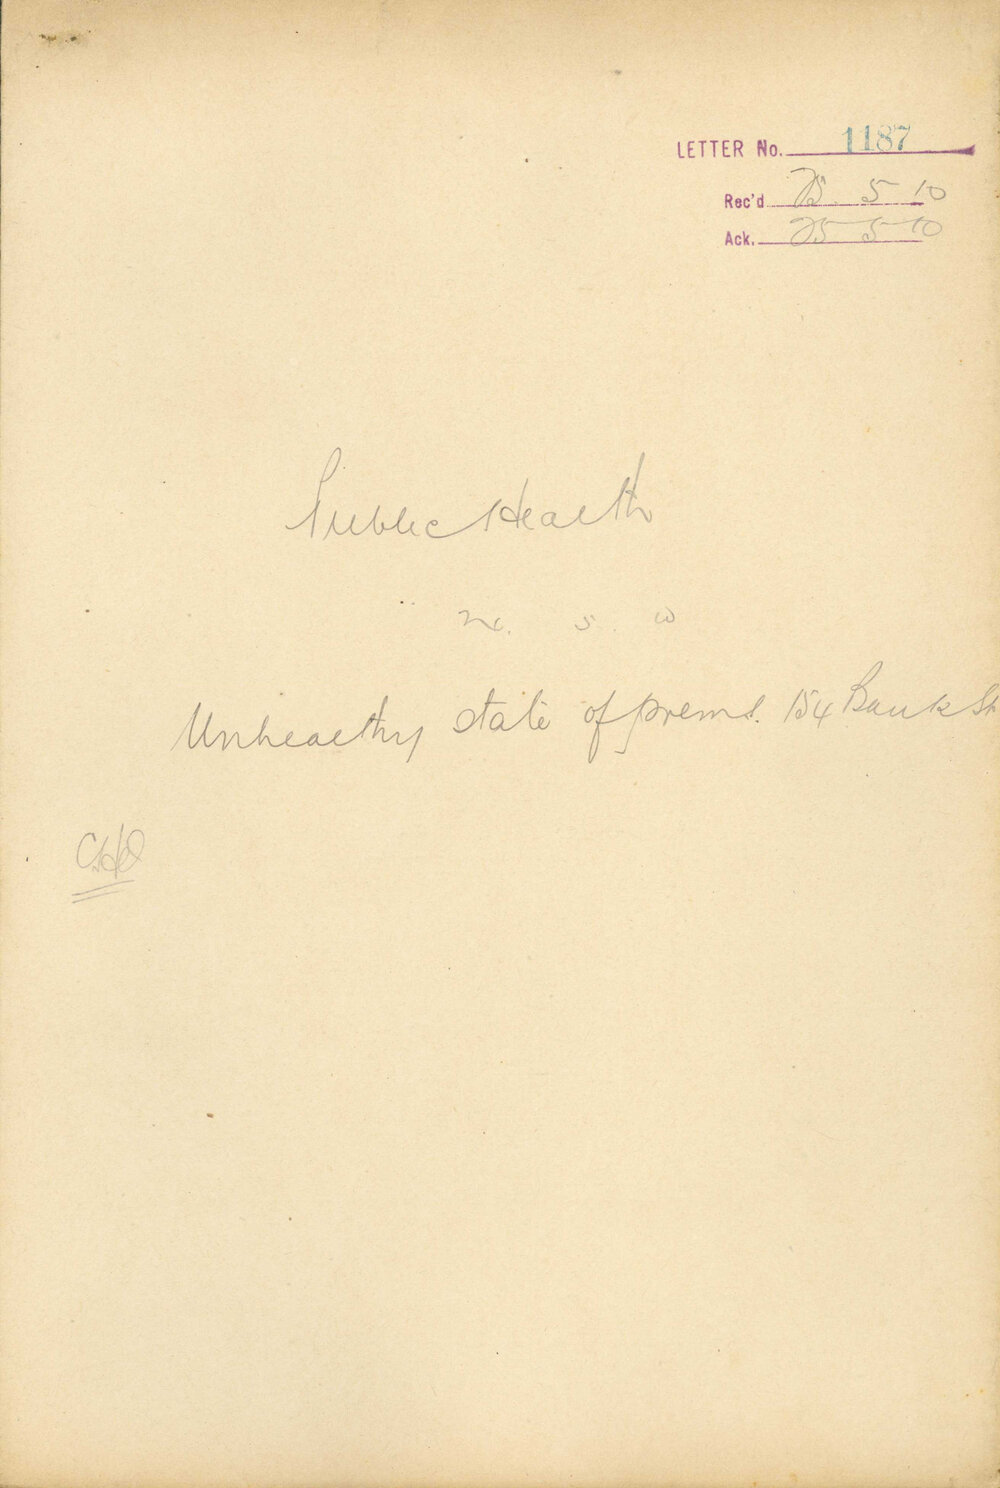 LETTER No. 1187
Rec'd 25. 5 10
Ack. 25 5 10
Public Health
N. S. W
Unhealthy state of prems. 154 Bank St